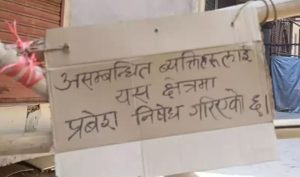 असम्बन्धित ब्यक्तिहरूलाई
यस क्षेत्रमा
प्रबेश निषेध गरिएको छ।